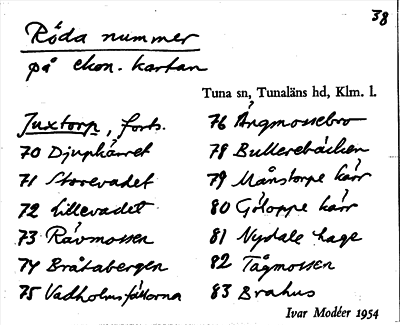 38
Röda nummer
på ekon. kartan
Tuna sn, Tunaläns hd, Klm. l.
Juxtorp, forts.
70 Djuphärret
71 Storevadet
72 Lillevadet
73 Rävmossen
74 Bråtabergen
75 Vadholmsfållorna
76 Ängmossebro
78 Bullerebäcken
79 Månstorpe kärr
80 Göloppe kärr
81 Nydale hage
82 Tågmossen
83 Brahus
Ivar Modéer 1954